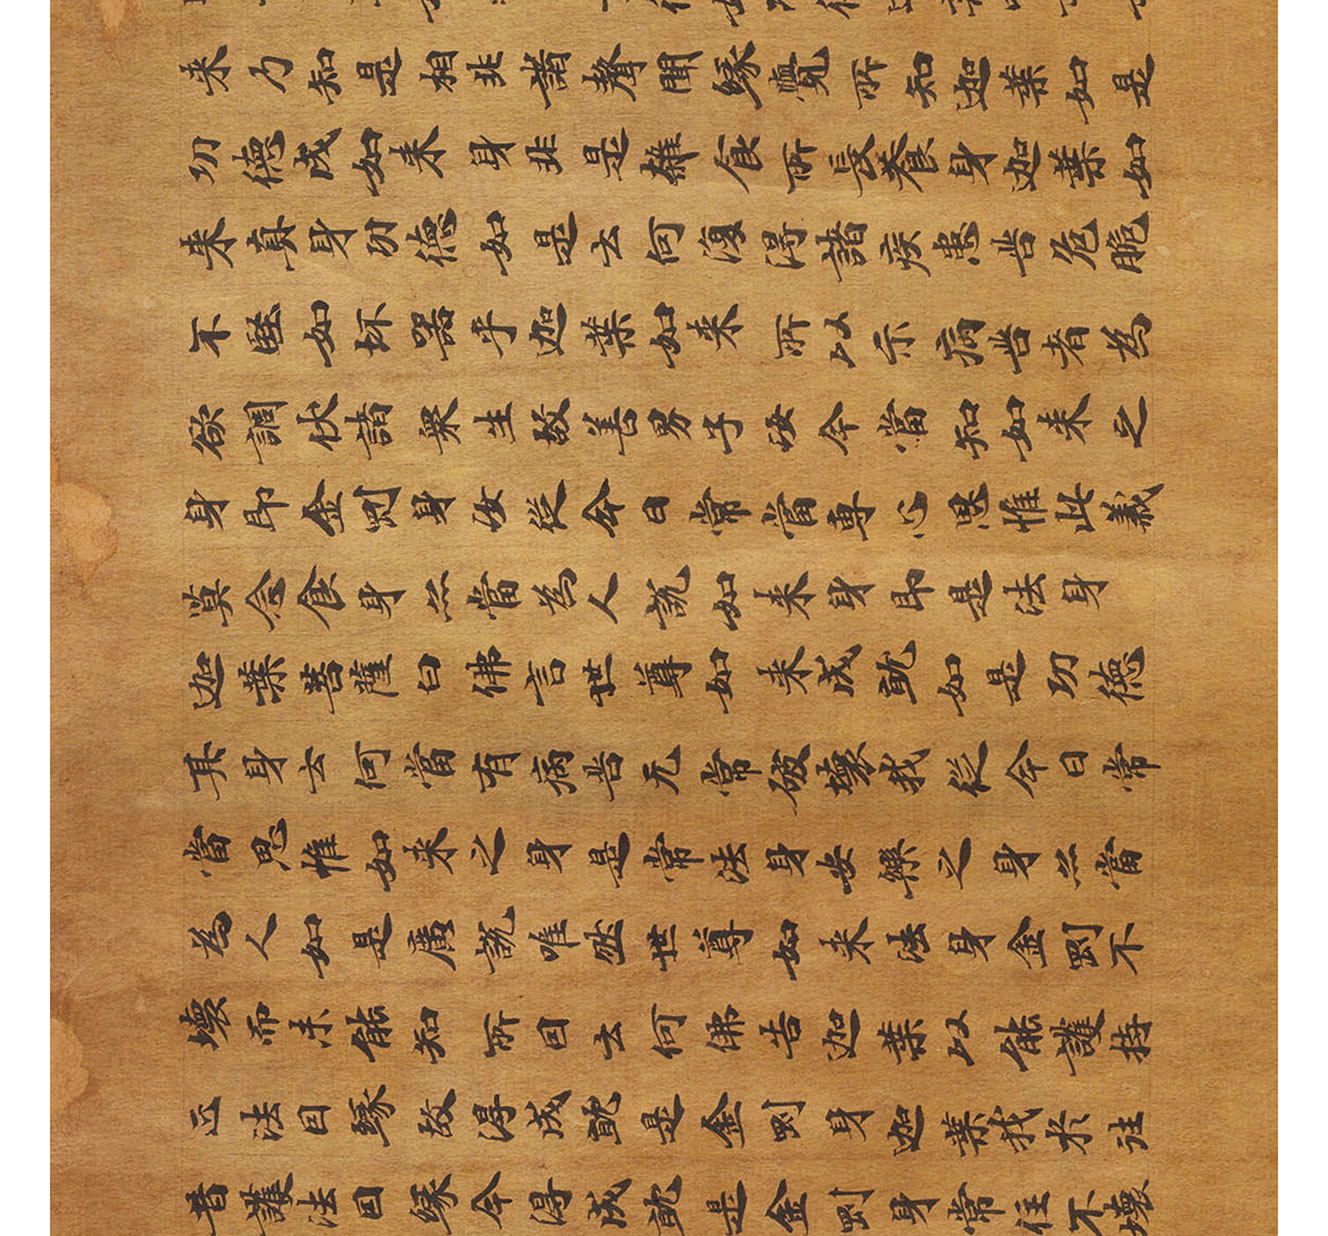 来乃知是相非諸聲聞縁覺所知迦葉如是
功德成如来身非是雜食所長養身迦葉如
来真身功德如是云何復得諸疾患苦危脆
不堅如坏器乎迦葉如来所以示病苦者為
欲調伏諸衆生故善男子汝今當知如来之
身即金剛身汝從今日常當專心思惟此義
莫念食身亦當為人說如来身即是法身
迦葉菩薩白佛言世尊如来成就如是功德
其身云何當有病苦无常破壞我從今日常
當思惟如来之身是常法身安樂之身亦當
為人如是廣說唯然世尊如来法身金剛不
壞而未能知所因云何佛告迦葉以能護持
正法因縁故得成就是金剛身迦葉我於往
昔護法因縁今得成就是金剛身常住不壞